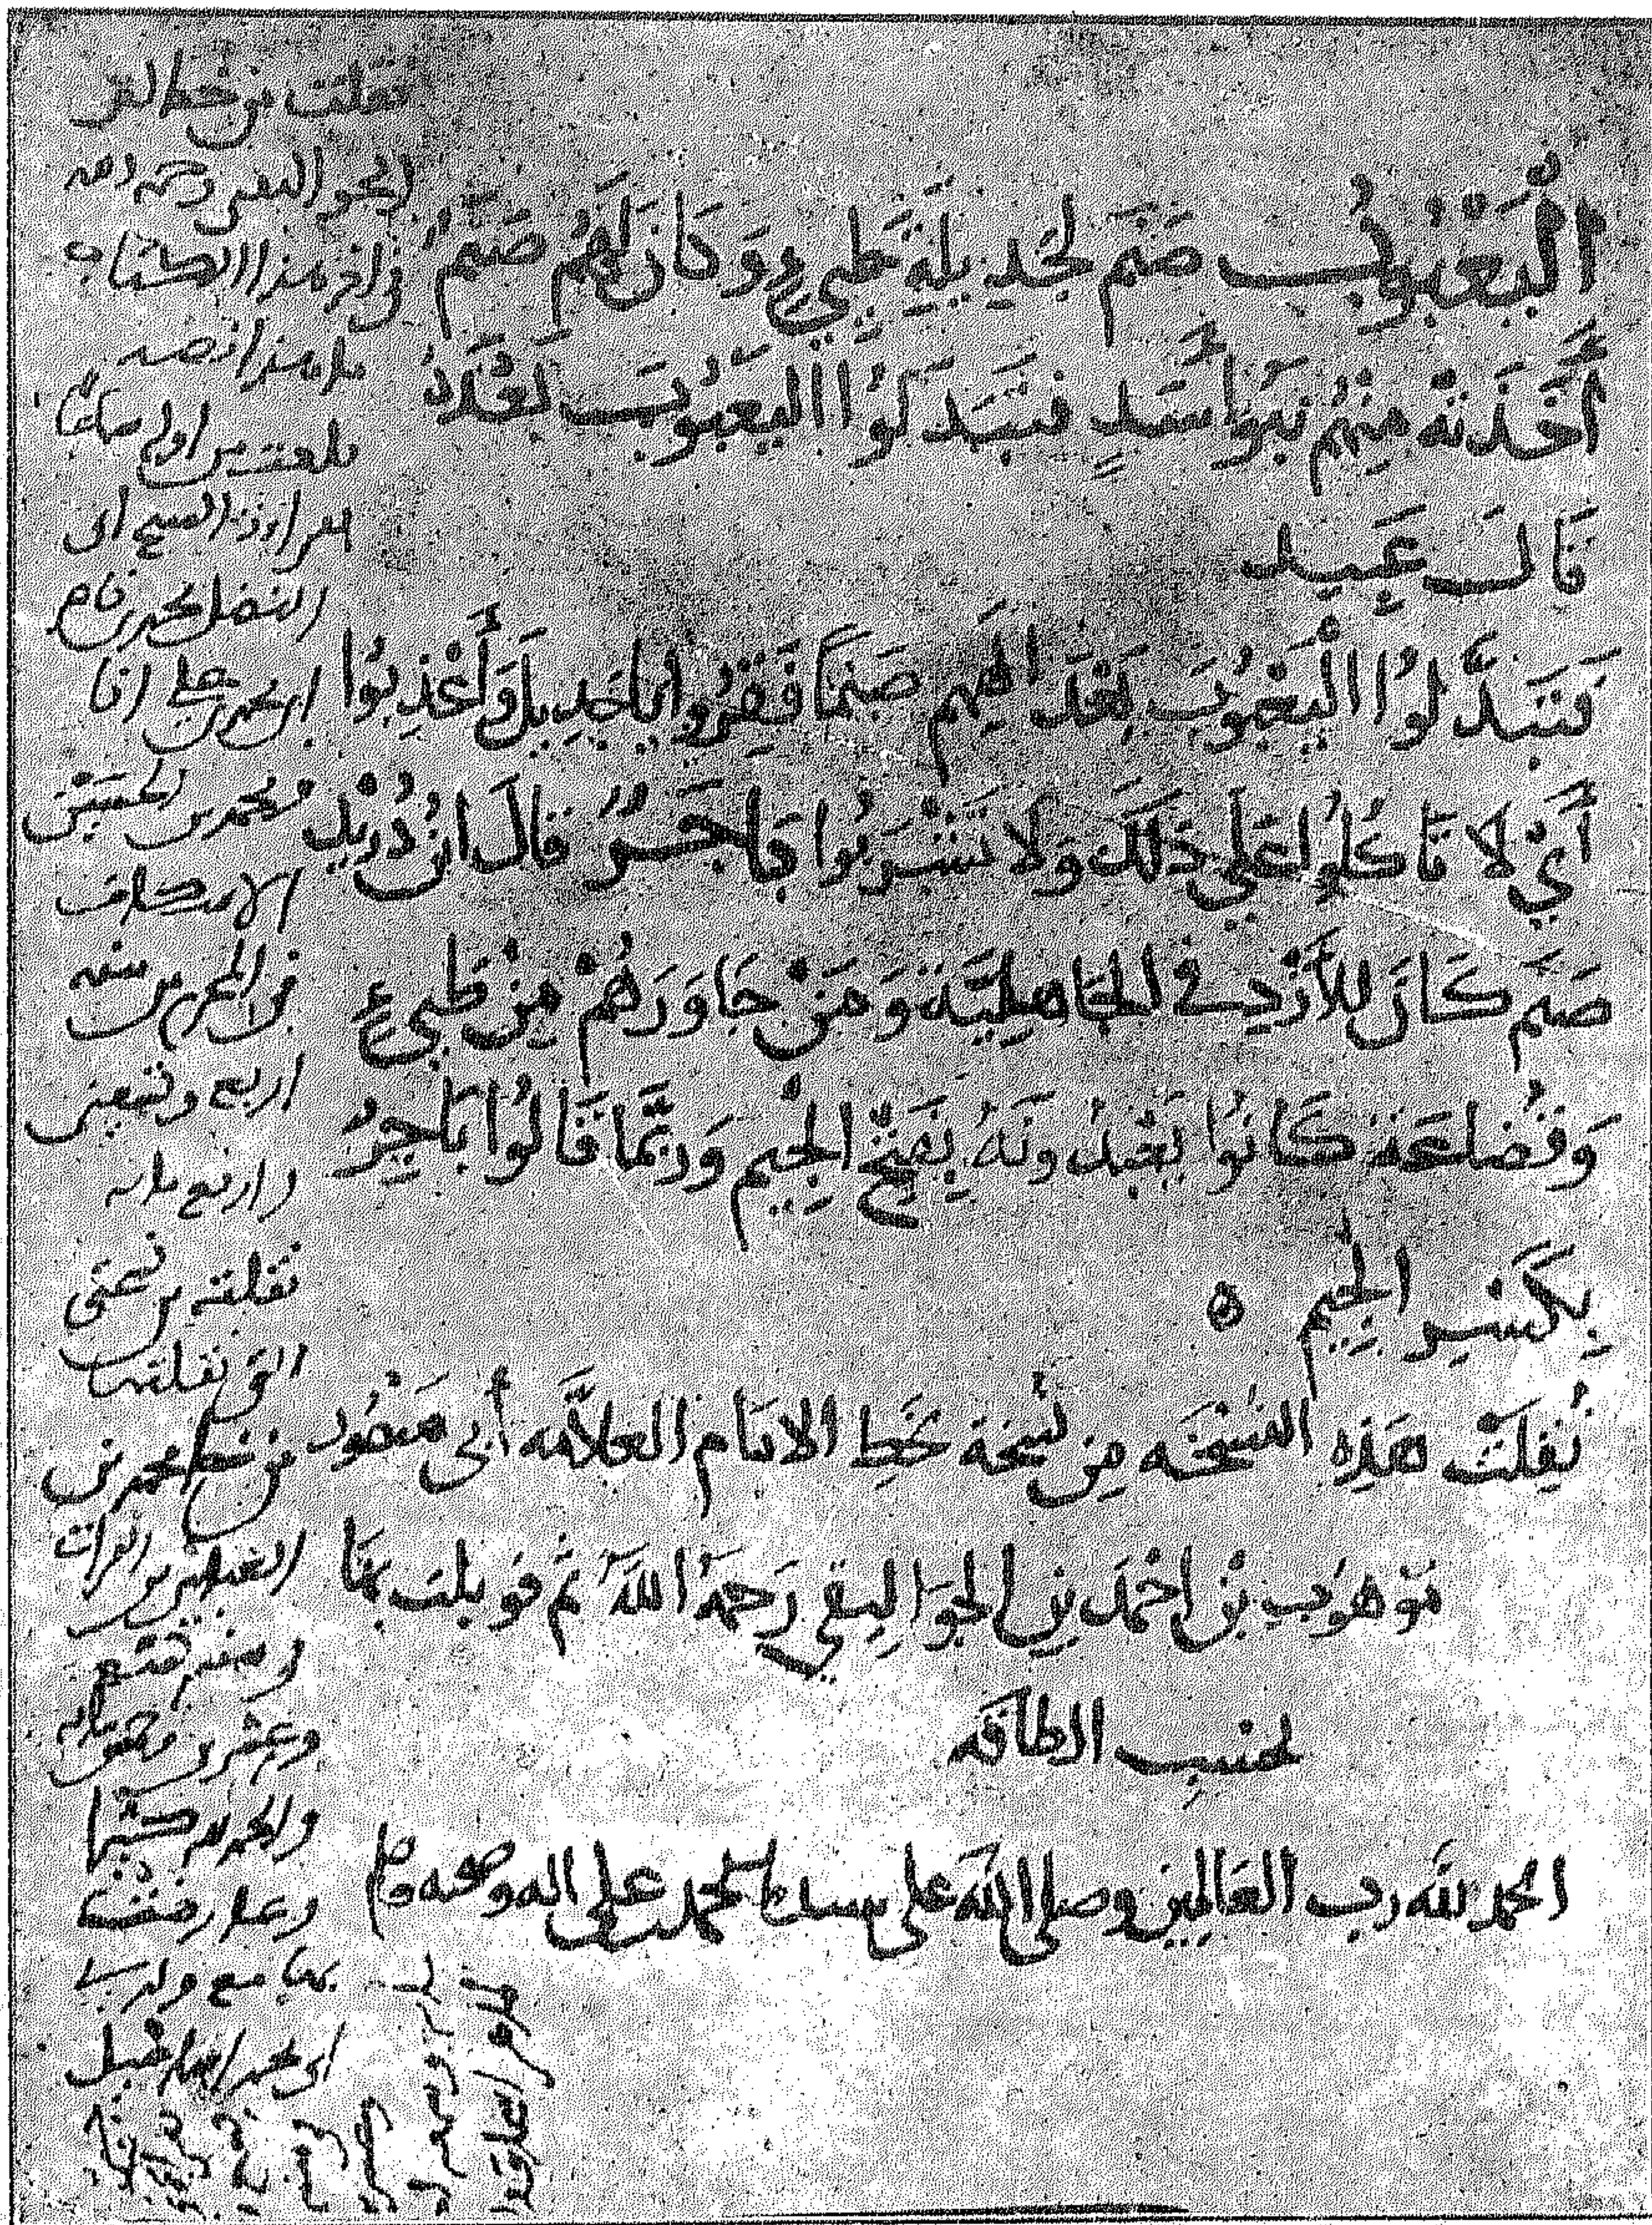 اليَعْبُوبُ صَنَم لجَدِيلَةِ طَيِّءٍ وَكَانَ لَهُمْ صَنَمٌ
أَخَذَتْهُ مِنْهُمْ بَنُو أَسَدٍ فَتَبَدَّلُوا اليَعْبُوبَ بَعْدَهُ
قَالَ عَبِيد
فَتَبَدَّلُوا اليَعْبُوبَ بَعْدَ إلهِهِم صَنَمًا فَقِرُّوا يا جَدِيلَ وَأَعْذِبُوا
أَيْ لا تَاكُلُوا عَلَى ذَلِكَ وَلا تَشْرَبُوا بَاجَرُ قَالَ ابْنُ دُرَيْدٍ
صَنَم كَانَ لِلأَزْدِ فِي الجَاهِليَّةِ وَمَنْ جَاوَرَهُمْ مِنْ طَيِّءٍ
وَقُضَاعَة كَانُوا يَعْبُدُونَهُ بِفَتْحِ الجِيمِ وَرُبَّمَا قَالُوا بَاجِرُ
بِكَسْرِ الجِيمِ ه
نُقِلَتْ هَذِهِ النُسْخَه مِنْ نُسْخَة بخَطِّ الامَامِ العَلاَّمَه أَبِي مَنْصُور
مَوْهُوب بْنِ احْمَدَ بْنِ الجَوَالِيقِي رَحِمَهُ اللهُ ثُمَّ قُوبلت بهَا
بحَسْبِ الطاقَه
الحمد لله رب العَالمِين وصلى الله على سيدنا محمد وعلى اله وصحبه وسلم
نقلت من خط ابن
الجواليقي رحمه الله
في اخر هذا الكتاب
ما هذا نصه
بلغت من اوله سماعا
الفضل محمد بن ناصر
ابن محمد بن علي انا
ومحمد بن الحسين
الاسكاف
في المحرم من سنه
اربع وتسعين
واربع مايه
نقلته من نسختي
التي نقلتها
من خط محمد بن
العباس بن الفرات
في سنه تسع
وعشرين وخمسمايه
والحمد لله كثيرا
وعارضت
بها مع ولدي
ابي محمد اسماعيل